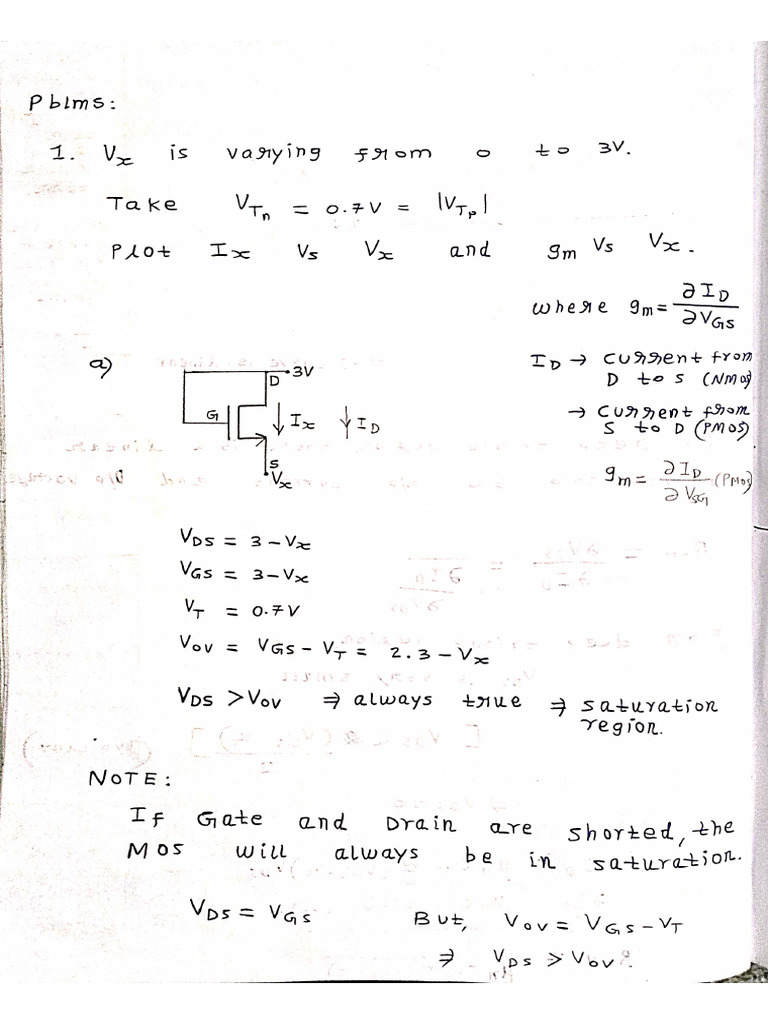 Pblms:
1. Vx is varying from 0 to 3V.
Take VTn = 0.7V = |VTp|
Plot Ix Vs Vx and gm Vs Vx.
where gm = ∂ID/∂VGS
a)
ID → current from
D to S (NMOS)
→ current from
S to D (PMOS)
gm = ∂ID/∂VSG (PMOS)
3V
D
G
Ix
ID
S
Vx
VDS = 3-Vx
VGS = 3-Vx
VT = 0.7V
VOV = VGS - VT = 2.3 - Vx
VDS > VOV ⇒ always true ⇒ saturation
region.
NOTE:
If Gate and Drain are shorted, the
MOS will always be in saturation.
VDS = VGS But, VOV = VGS - VT
⇒ VDS > VOV.